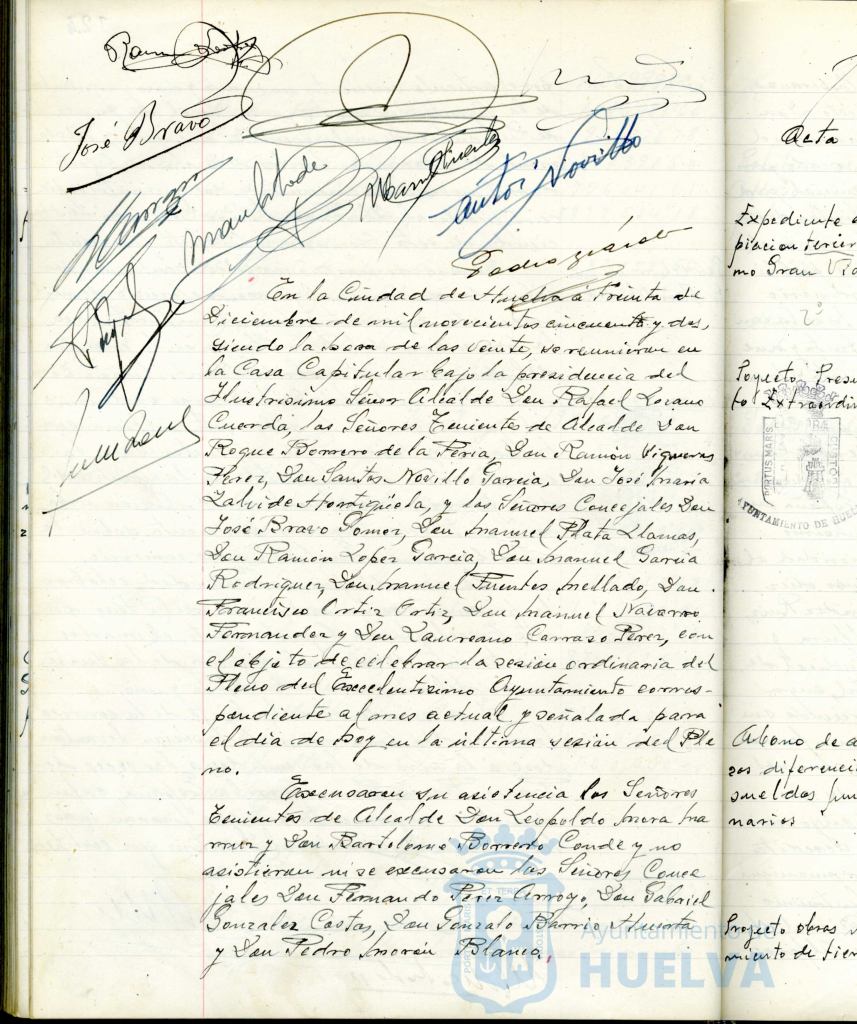 José Bravo
Antº Novillo
En la Ciudad de Huelva a treinta de
Diciembre de mil novecientos cincuenta y dos,
siendo la hora de las veinte, se reunieron en
la Casa Capitular bajo la presidencia del
Ilustrísimo Señor Alcalde Don Rafael Lozano
Cuerda, los Señores Tenientes de Alcalde Don
Roque Borrero de la Feria, Don Ramón Vigueras
Perez, Don Santos Novillo García, Don José María
Zalvide Hortigüela, y los Señores Concejales Don
José Bravo Gomez, Don Manuel Plata Llamas,
Don Ramón Lopez Garcia, Don Manuel García
Rodriguez, Don Manuel Fuentes Mellado, Don
Francisco Ortiz Ortiz, Don Manuel Navarro
Fernandez y Don Laureano Carrazo Perez, con
el objeto de celebrar la sesión ordinaria del
Pleno del Excelentísimo Ayuntamiento corres-
pondiente al mes actual y señalada para
el día de hoy en la última sesión del Ple
no.
Excusaron su asistencia los Señores
Tenientes de Alcalde Don Leopoldo Mora
y Don Bartolome Borrero Conde y no
asistieron ni se excusaron los Señores Conce
jales Don Fernando Perez Arroyo, Don Gabriel
Gonzalez Costas, Don Gonzalo Barrio Huerta
y Don Pedro Morón Blanco.
Acta
Expediente
piacion tercer
mo Gran Via
2º
to Extraordin
PORTUS MARIS
CUSTOD
AYUNTAMIENTO DE HUEL
Abono de
diferenci
sueldos fun
narios
Proyecto obras
miento de
Ayuntamiento de
HUELVA